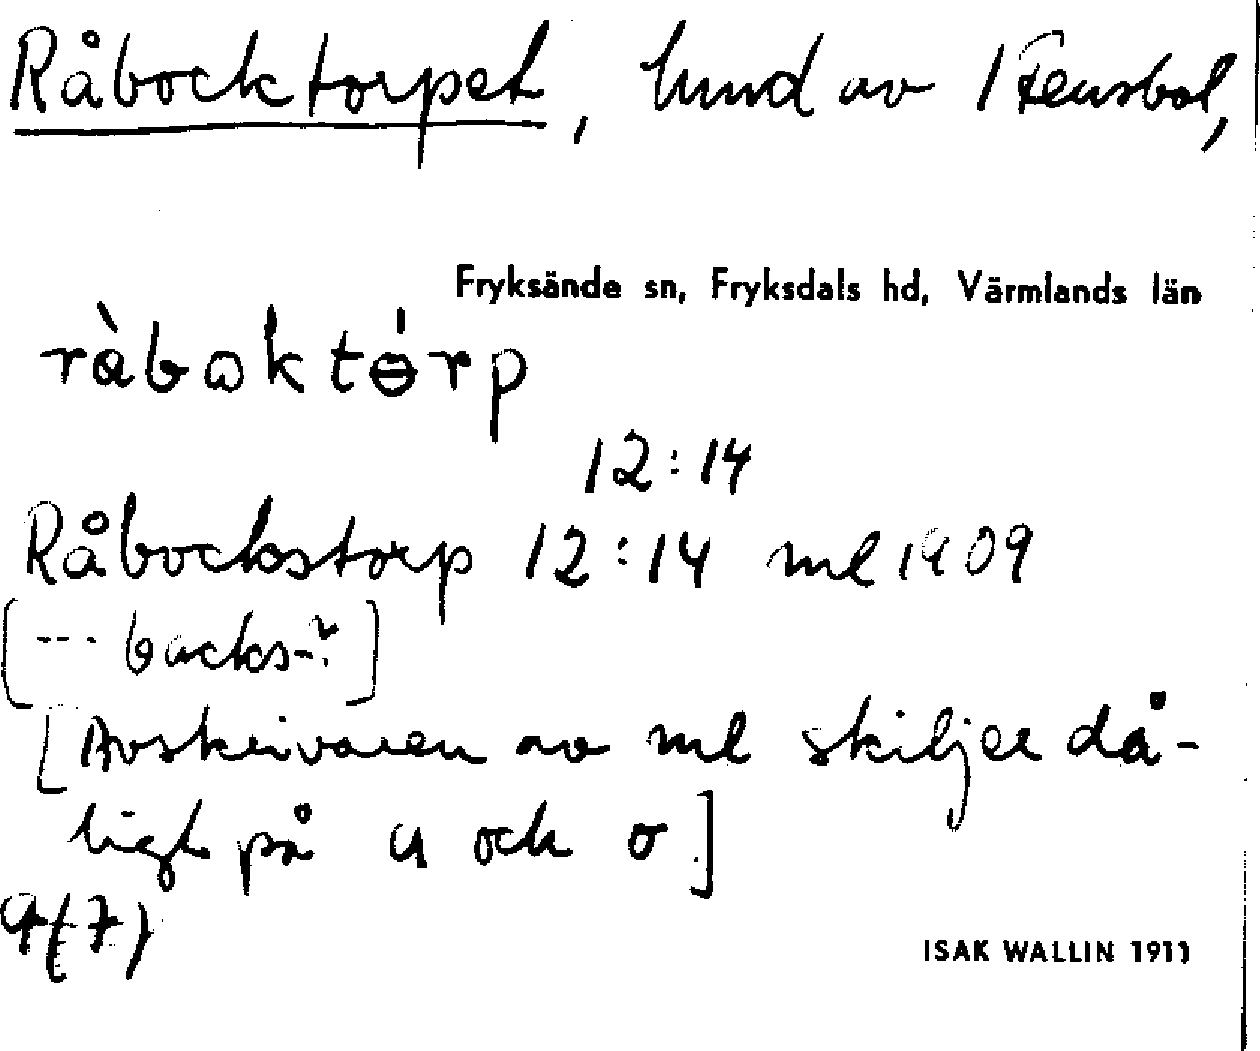 Råbocktorpet, hmd av 1 Stensbol,
Fryksände sn, Fryksdals hd, Värmlands län
ràboktórp
12:14
Råbockstorp 12:14 ml 1909
[--- backs-?]
[Avskrivaren av ml skiljer då-
ligt på a och o]
9(7)
ISAK WALLIN 1911